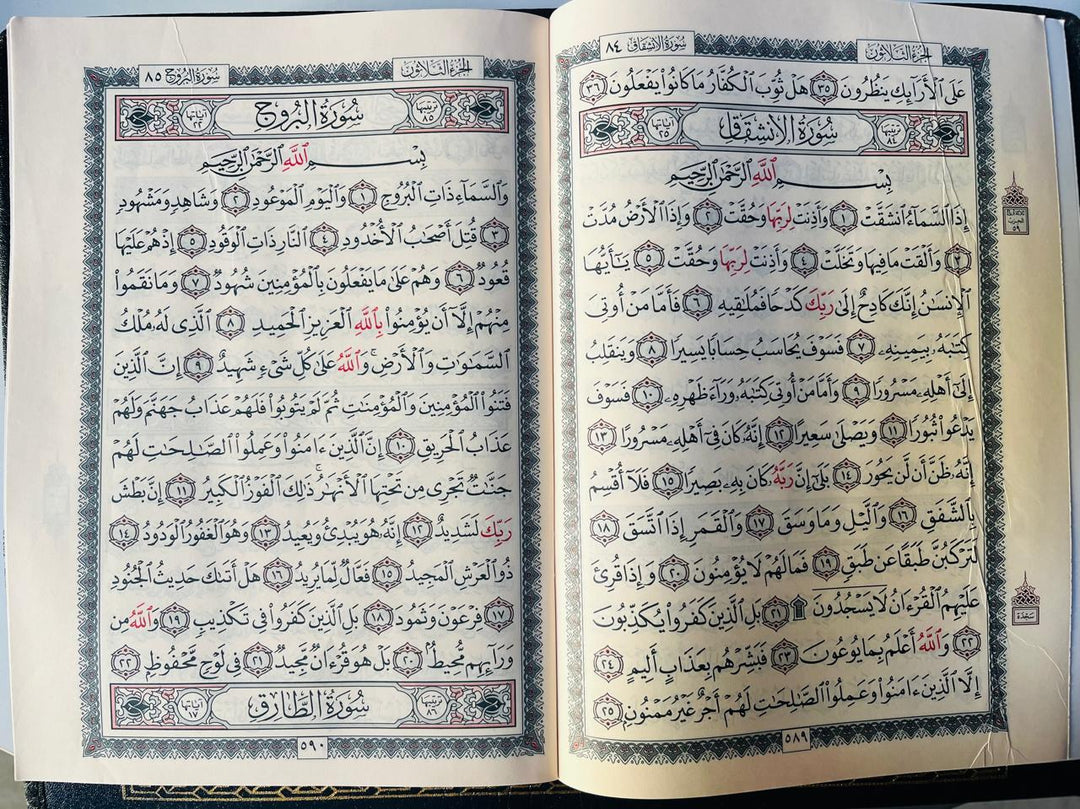 الجزء الثلاثون
سورة الانشقاق ٨٤
عَلَى ٱلۡأَرَآئِكِ يَنظُرُونَ ٣٥ هَلۡ ثُوِّبَ ٱلۡكُفَّارُ مَا كَانُواْ يَفۡعَلُونَ ٣٦
ترتيبها ٨٤ سُورَةُ الانشِقَاقِ آياتها ٢٥
بِسۡمِ ٱللَّهِ ٱلرَّحۡمَٰنِ ٱلرَّحِيمِ
إِذَا ٱلسَّمَآءُ ٱنشَقَّتۡ ١ وَأَذِنَتۡ لِرَبِّهَا وَحُقَّتۡ ٢ وَإِذَا ٱلۡأَرۡضُ مُدَّتۡ
٣ وَأَلۡقَتۡ مَا فِيهَا وَتَخَلَّتۡ ٤ وَأَذِنَتۡ لِرَبِّهَا وَحُقَّتۡ ٥ يَٰٓأَيُّهَا
ٱلۡإِنسَٰنُ إِنَّكَ كَادِحٌ إِلَىٰ رَبِّكَ كَدۡحٗا فَمُلَٰقِيهِ ٦ فَأَمَّا مَنۡ أُوتِيَ
كِتَٰبَهُۥ بِيَمِينِهِۦ ٧ فَسَوۡفَ يُحَاسَبُ حِسَابٗا يَسِيرٗا ٨ وَيَنقَلِبُ
إِلَىٰٓ أَهۡلِهِۦ مَسۡرُورٗا ٩ وَأَمَّا مَنۡ أُوتِيَ كِتَٰبَهُۥ وَرَآءَ ظَهۡرِهِۦ ١٠ فَسَوۡفَ
يَدۡعُواْ ثُبُورٗا ١١ وَيَصۡلَىٰ سَعِيرًا ١٢ إِنَّهُۥ كَانَ فِيٓ أَهۡلِهِۦ مَسۡرُورًا ١٣
إِنَّهُۥ ظَنَّ أَن لَّن يَحُورَ ١٤ بَلَىٰٓ إِنَّ رَبَّهُۥ كَانَ بِهِۦ بَصِيرٗا ١٥ فَلَآ أُقۡسِمُ
بِٱلشَّفَقِ ١٦ وَٱلَّيۡلِ وَمَا وَسَقَ ١٧ وَٱلۡقَمَرِ إِذَا ٱتَّسَقَ ١٨
لَتَرۡكَبُنَّ طَبَقًا عَن طَبَقٖ ١٩ فَمَا لَهُمۡ لَا يُؤۡمِنُونَ ٢٠ وَإِذَا قُرِئَ
عَلَيۡهِمُ ٱلۡقُرۡءَانُ لَا يَسۡجُدُونَۤ ۩ ٢١ بَلِ ٱلَّذِينَ كَفَرُواْ يُكَذِّبُونَ
٢٢ وَٱللَّهُ أَعۡلَمُ بِمَا يُوعُونَ ٢٣ فَبَشِّرۡهُم بِعَذَابٍ أَلِيمٍ ٢٤
إِلَّا ٱلَّذِينَ ءَامَنُواْ وَعَمِلُواْ ٱلصَّٰلِحَٰتِ لَهُمۡ أَجۡرٌ غَيۡرُ مَمۡنُونِۭ ٢٥
الحزب ٥٩
سجدة
٥٨٩
الجزء الثلاثون
سورة البروج ٨٥
ترتيبها ٨٥ سُورَةُ البُرُوجِ آياتها ٢٢
بِسۡمِ ٱللَّهِ ٱلرَّحۡمَٰنِ ٱلرَّحِيمِ
وَٱلسَّمَآءِ ذَاتِ ٱلۡبُرُوجِ ١ وَٱلۡيَوۡمِ ٱلۡمَوۡعُودِ ٢ وَشَاهِدٖ وَمَشۡهُودٖ
٣ قُتِلَ أَصۡحَٰبُ ٱلۡأُخۡدُودِ ٤ ٱلنَّارِ ذَاتِ ٱلۡوَقُودِ ٥ إِذۡ هُمۡ عَلَيۡهَا
قُعُودٞ ٦ وَهُمۡ عَلَىٰ مَا يَفۡعَلُونَ بِٱلۡمُؤۡمِنِينَ شُهُودٞ ٧ وَمَا نَقَمُواْ
مِنۡهُمۡ إِلَّآ أَن يُؤۡمِنُواْ بِٱللَّهِ ٱلۡعَزِيزِ ٱلۡحَمِيدِ ٨ ٱلَّذِي لَهُۥ مُلۡكُ
ٱلسَّمَٰوَٰتِ وَٱلۡأَرۡضِۚ وَٱللَّهُ عَلَىٰ كُلِّ شَيۡءٖ شَهِيدٌ ٩ إِنَّ ٱلَّذِينَ
فَتَنُواْ ٱلۡمُؤۡمِنِينَ وَٱلۡمُؤۡمِنَٰتِ ثُمَّ لَمۡ يَتُوبُواْ فَلَهُمۡ عَذَابُ جَهَنَّمَ وَلَهُمۡ
عَذَابُ ٱلۡحَرِيقِ ١٠ إِنَّ ٱلَّذِينَ ءَامَنُواْ وَعَمِلُواْ ٱلصَّٰلِحَٰتِ لَهُمۡ
جَنَّٰتٞ تَجۡرِي مِن تَحۡتِهَا ٱلۡأَنۡهَٰرُۚ ذَٰلِكَ ٱلۡفَوۡزُ ٱلۡكَبِيرُ ١١ إِنَّ بَطۡشَ
رَبِّكَ لَشَدِيدٌ ١٢ إِنَّهُۥ هُوَ يُبۡدِئُ وَيُعِيدُ ١٣ وَهُوَ ٱلۡغَفُورُ ٱلۡوَدُودُ ١٤
ذُو ٱلۡعَرۡشِ ٱلۡمَجِيدُ ١٥ فَعَّالٞ لِّمَا يُرِيدُ ١٦ هَلۡ أَتَىٰكَ حَدِيثُ ٱلۡجُنُودِ
١٧ فِرۡعَوۡنَ وَثَمُودَ ١٨ بَلِ ٱلَّذِينَ كَفَرُواْ فِي تَكۡذِيبٖ ١٩ وَٱللَّهُ مِن
وَرَآئِهِم مُّحِيطُۢ ٢٠ بَلۡ هُوَ قُرۡءَانٞ مَّجِيدٞ ٢١ فِي لَوۡحٖ مَّحۡفُوظِۭ ٢٢
ترتيبها ٨٦ سُورَةُ الطَّارِقِ آياتها ١٧
٥٩٠